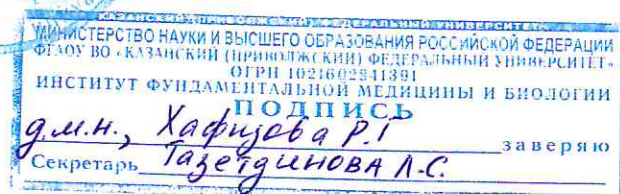 КАЗАНСКИЙ (ПРИВОЛЖСКИЙ) ФЕДЕРАЛЬНЫЙ УНИВЕРСИТЕТ
МИНИСТЕРСТВО НАУКИ И ВЫСШЕГО ОБРАЗОВАНИЯ РОССИЙСКОЙ ФЕДЕРАЦИИ
ФГАОУ ВО «КАЗАНСКИЙ (ПРИВОЛЖСКИЙ) ФЕДЕРАЛЬНЫЙ УНИВЕРСИТЕТ»
ОГРН 1021602841391
ИНСТИТУТ ФУНДАМЕНТАЛЬНОЙ МЕДИЦИНЫ И БИОЛОГИИ
ПОДПИСЬ
д.м.н., Хафизова Р.Г заверяю
Секретарь Тазетдинова Л.С.